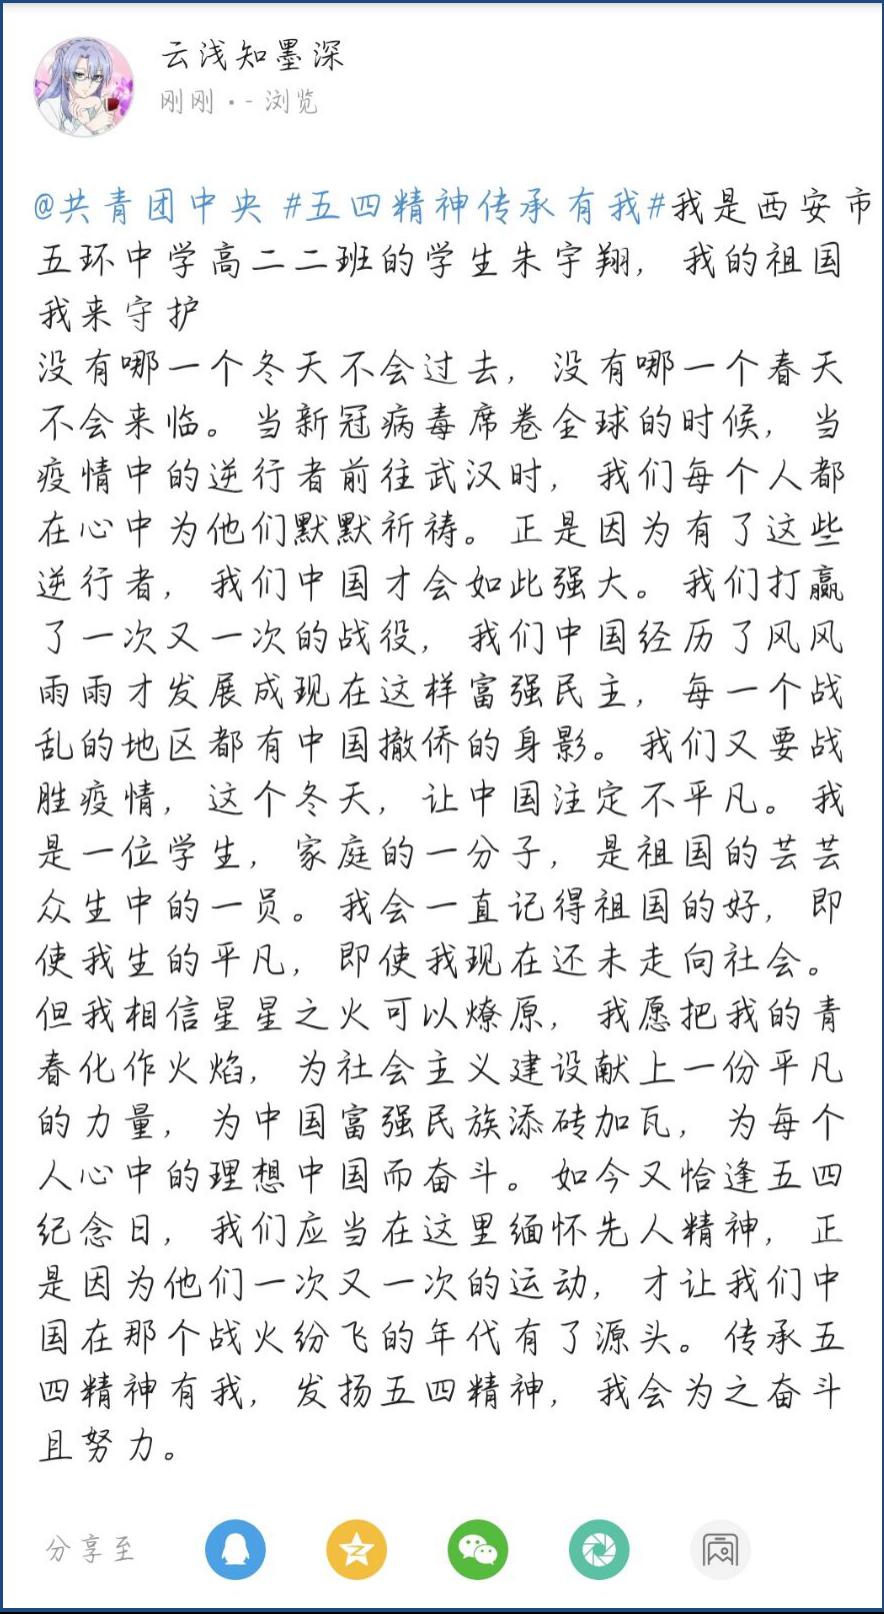 云浅知墨深
刚刚·- 浏览
@共青团中央 #五四精神传承有我#我是西安市
五环中学高二二班的学生朱宇翔，我的祖国
我来守护
没有哪一个冬天不会过去，没有哪一个春天
不会来临。当新冠病毒席卷全球的时候，当
疫情中的逆行者前往武汉时，我们每个人都
在心中为他们默默祈祷。正是因为有了这些
逆行者，我们中国才会如此强大。我们打赢
了一次又一次的战役，我们中国经历了风风
雨雨才发展成现在这样富强民主，每一个战
乱的地区都有中国撤侨的身影。我们又要战
胜疫情，这个冬天，让中国注定不平凡。我
是一位学生，家庭的一分子，是祖国的芸芸
众生中的一员。我会一直记得祖国的好，即
使我生的平凡，即使我现在还未走向社会。
但我相信星星之火可以燎原，我愿把我的青
春化作火焰，为社会主义建设献上一份平凡
的力量，为中国富强民族添砖加瓦，为每个
人心中的理想中国而奋斗。如今又恰逢五四
纪念日，我们应当在这里缅怀先人精神，正
是因为他们一次又一次的运动，才让我们中
国在那个战火纷飞的年代有了源头。传承五
四精神有我，发扬五四精神，我会为之奋斗
且努力。
分享至